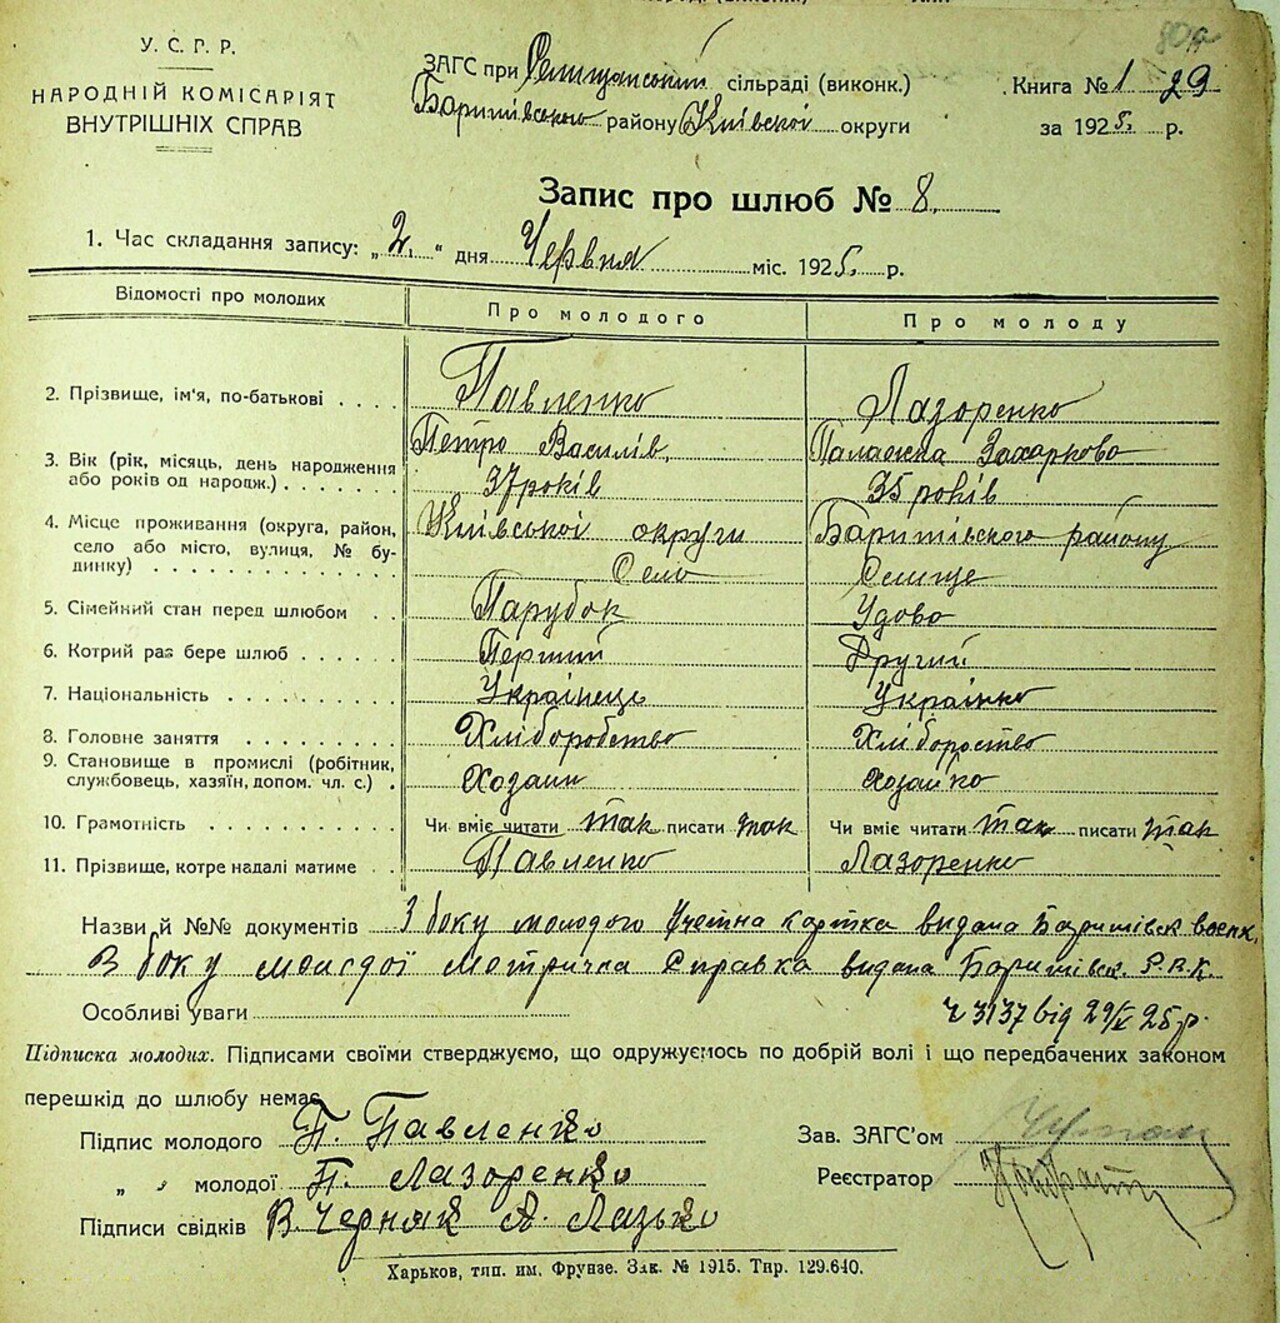 У. С. Р. Р.
НАРОДНІЙ КОМІСАРІЯТ
ВНУТРІШНІХ СПРАВ
ЗАГС при Селищанський сільраді (виконк.)
Баришівського району Київскої округи
Книга № 1 29
за 1925. р.
Запис про шлюб № 8.
1. Час складання запису: „2." дня Червня міс. 1925. р.
Відомості про молодих Про молодого Про молоду
2. Прізвище, ім'я, по-батькові Павленко Лазоренко
Петро Василів. Палажка Захаркова
3. Вік (рік, місяць, день народження
або років од народж.) 37 років 35 років
4. Місце проживання (округа, район, Київської округи Баришівского району
село або місто, вулиця, № бу-
динку) Село Селище
5. Сімейний стан перед шлюбом Парубок Удова
6. Котрий раз бере шлюб Перший Другий
7. Національність Українець Українка
8. Головне заняття Хліборобство Хлібороство
9. Становище в промислі (робітник,
службовець, хазяїн, допом. чл. с.) Хозаин Хозайка
10. Грамотність Чи вміє читати так писати так Чи вміє читати так писати так
11. Прізвище, котре надалі матиме Павленко Лазоренко
Назви й №№ документів З боку молодого Учетна картка видана Баришівск военк.
З боку молодої метрична Справка видана Баришівск. Р.В.К.
Особливі уваги ч 3137 від 29/V 25 р.
Підписка молодих. Підписами своїми стверджуємо, що одружуємось по добрій волі і що передбачених законом
перешкід до шлюбу немає
Підпис молодого П. Павленко
„ „ молодої П. Лазоренко
Підписи свідків В. Черняк А. Лазько
Зав. ЗАГС'ом
Реєстратор
Харьков, тип. им. Фрунзе. Зак. № 1915. Тир. 129.640.